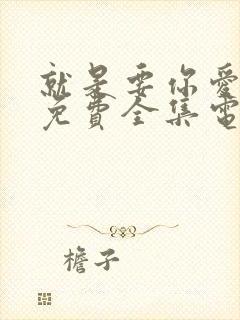 就是要你愛
免費全集電
檐子